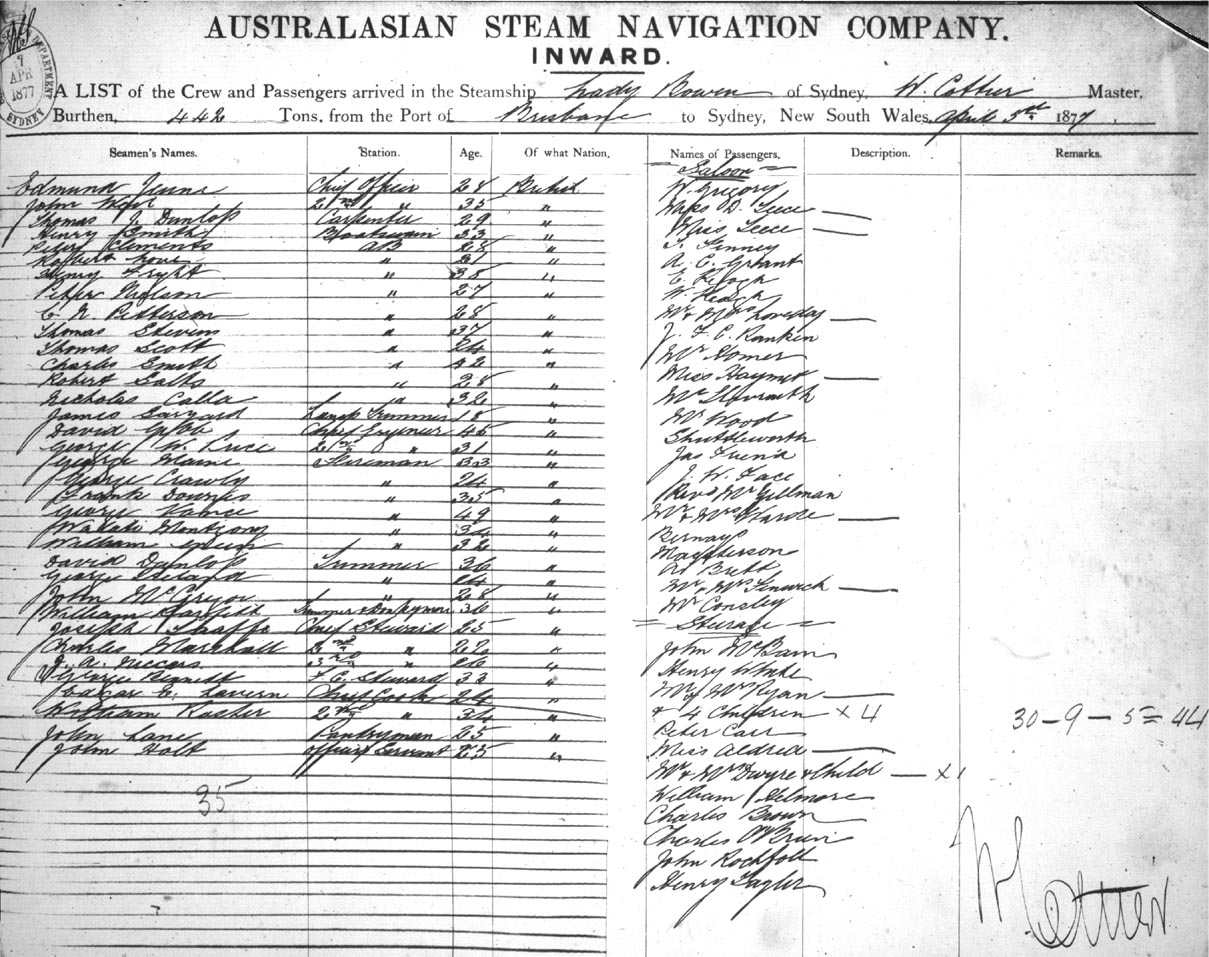 AUSTRALASIAN STEAM NAVIGATION COMPANY.
INWARD.
DEPARTMENT 7 APR 1877 SYDNEY
A LIST of the Crew and Passengers arrived in the Steamship Lady Bowen of Sydney, W. Cottier Master,
Burthen, 442 Tons, from the Port of Brisbane to Sydney, New South Wales, April 5th 1877
Seamen's Names. Station. Age. Of what Nation, Names of Passengers, Description. Remarks.
Edmund Chief Officer 28 British
John 2nd " 35 "
Thomas J. Dunlop Carpenter 29 "
Henry Smith Boatswain 33 "
Peter Clements AB 28 "
Robert " 31 "
Henry Fryht " 38 "
Peter " 27 "
C. N. Petterson " 28 "
Thomas Stevens " 37 "
Thomas Scott " 24 "
Charles Smith " 42 "
Robert Salts " 28 "
Nicholas Calla " 32 "
James Lamp Trimmer 18 "
David Chief Engineer 45 "
George W. 2nd " 31 "
George Fireman 33 "
George Crawly " 24 "
Frank Downes " 35 "
George Vance " 49 "
" 30 "
William " 32 "
David Dunlop Trimmer 36 "
George " 24 "
John McGregor " 28 "
William Trimmer & Donkeyman 36 "
Joseph Chief Steward 25 "
Charles Marshall 2nd " 22 "
J. A. 3rd " 26 "
George Bennett F. C. Steward 33 "
Edgar E. Lavern Chief Cook 24 "
William Rusher 2nd " 34 "
John Lane Pantryman 25 "
John Holt Officers Servant 25 "
35
= Saloon =
W. Gregory
D. Leece
Miss Leece
T. Finney
A. C. Grant
E. Keogh
W. Keogh
Mr & Mrs Loveday
J. F. C. Rankin
Mr Homer
Miss Haymet
Mr
Mr Wood
Shuttleworth
Jas Friend
J. W. Face
Revd Mr Gellman
Mr & Mrs Warde
Bernays
Matherson
Britt
Mr & Mrs Fenwick
Mr Consley
= Steerage =
John McBain
Henry White
Mr & Mrs Ryan
& 4 Children x 4
Peter Carr
Miss Aldred
Mr & Mrs Dwyre & Child x 1
William Gilmore
Charles Brown
Charles O'Brien
John Rochfort
Henry Taylor
30 - 9 - 5 = 44
W Cottier